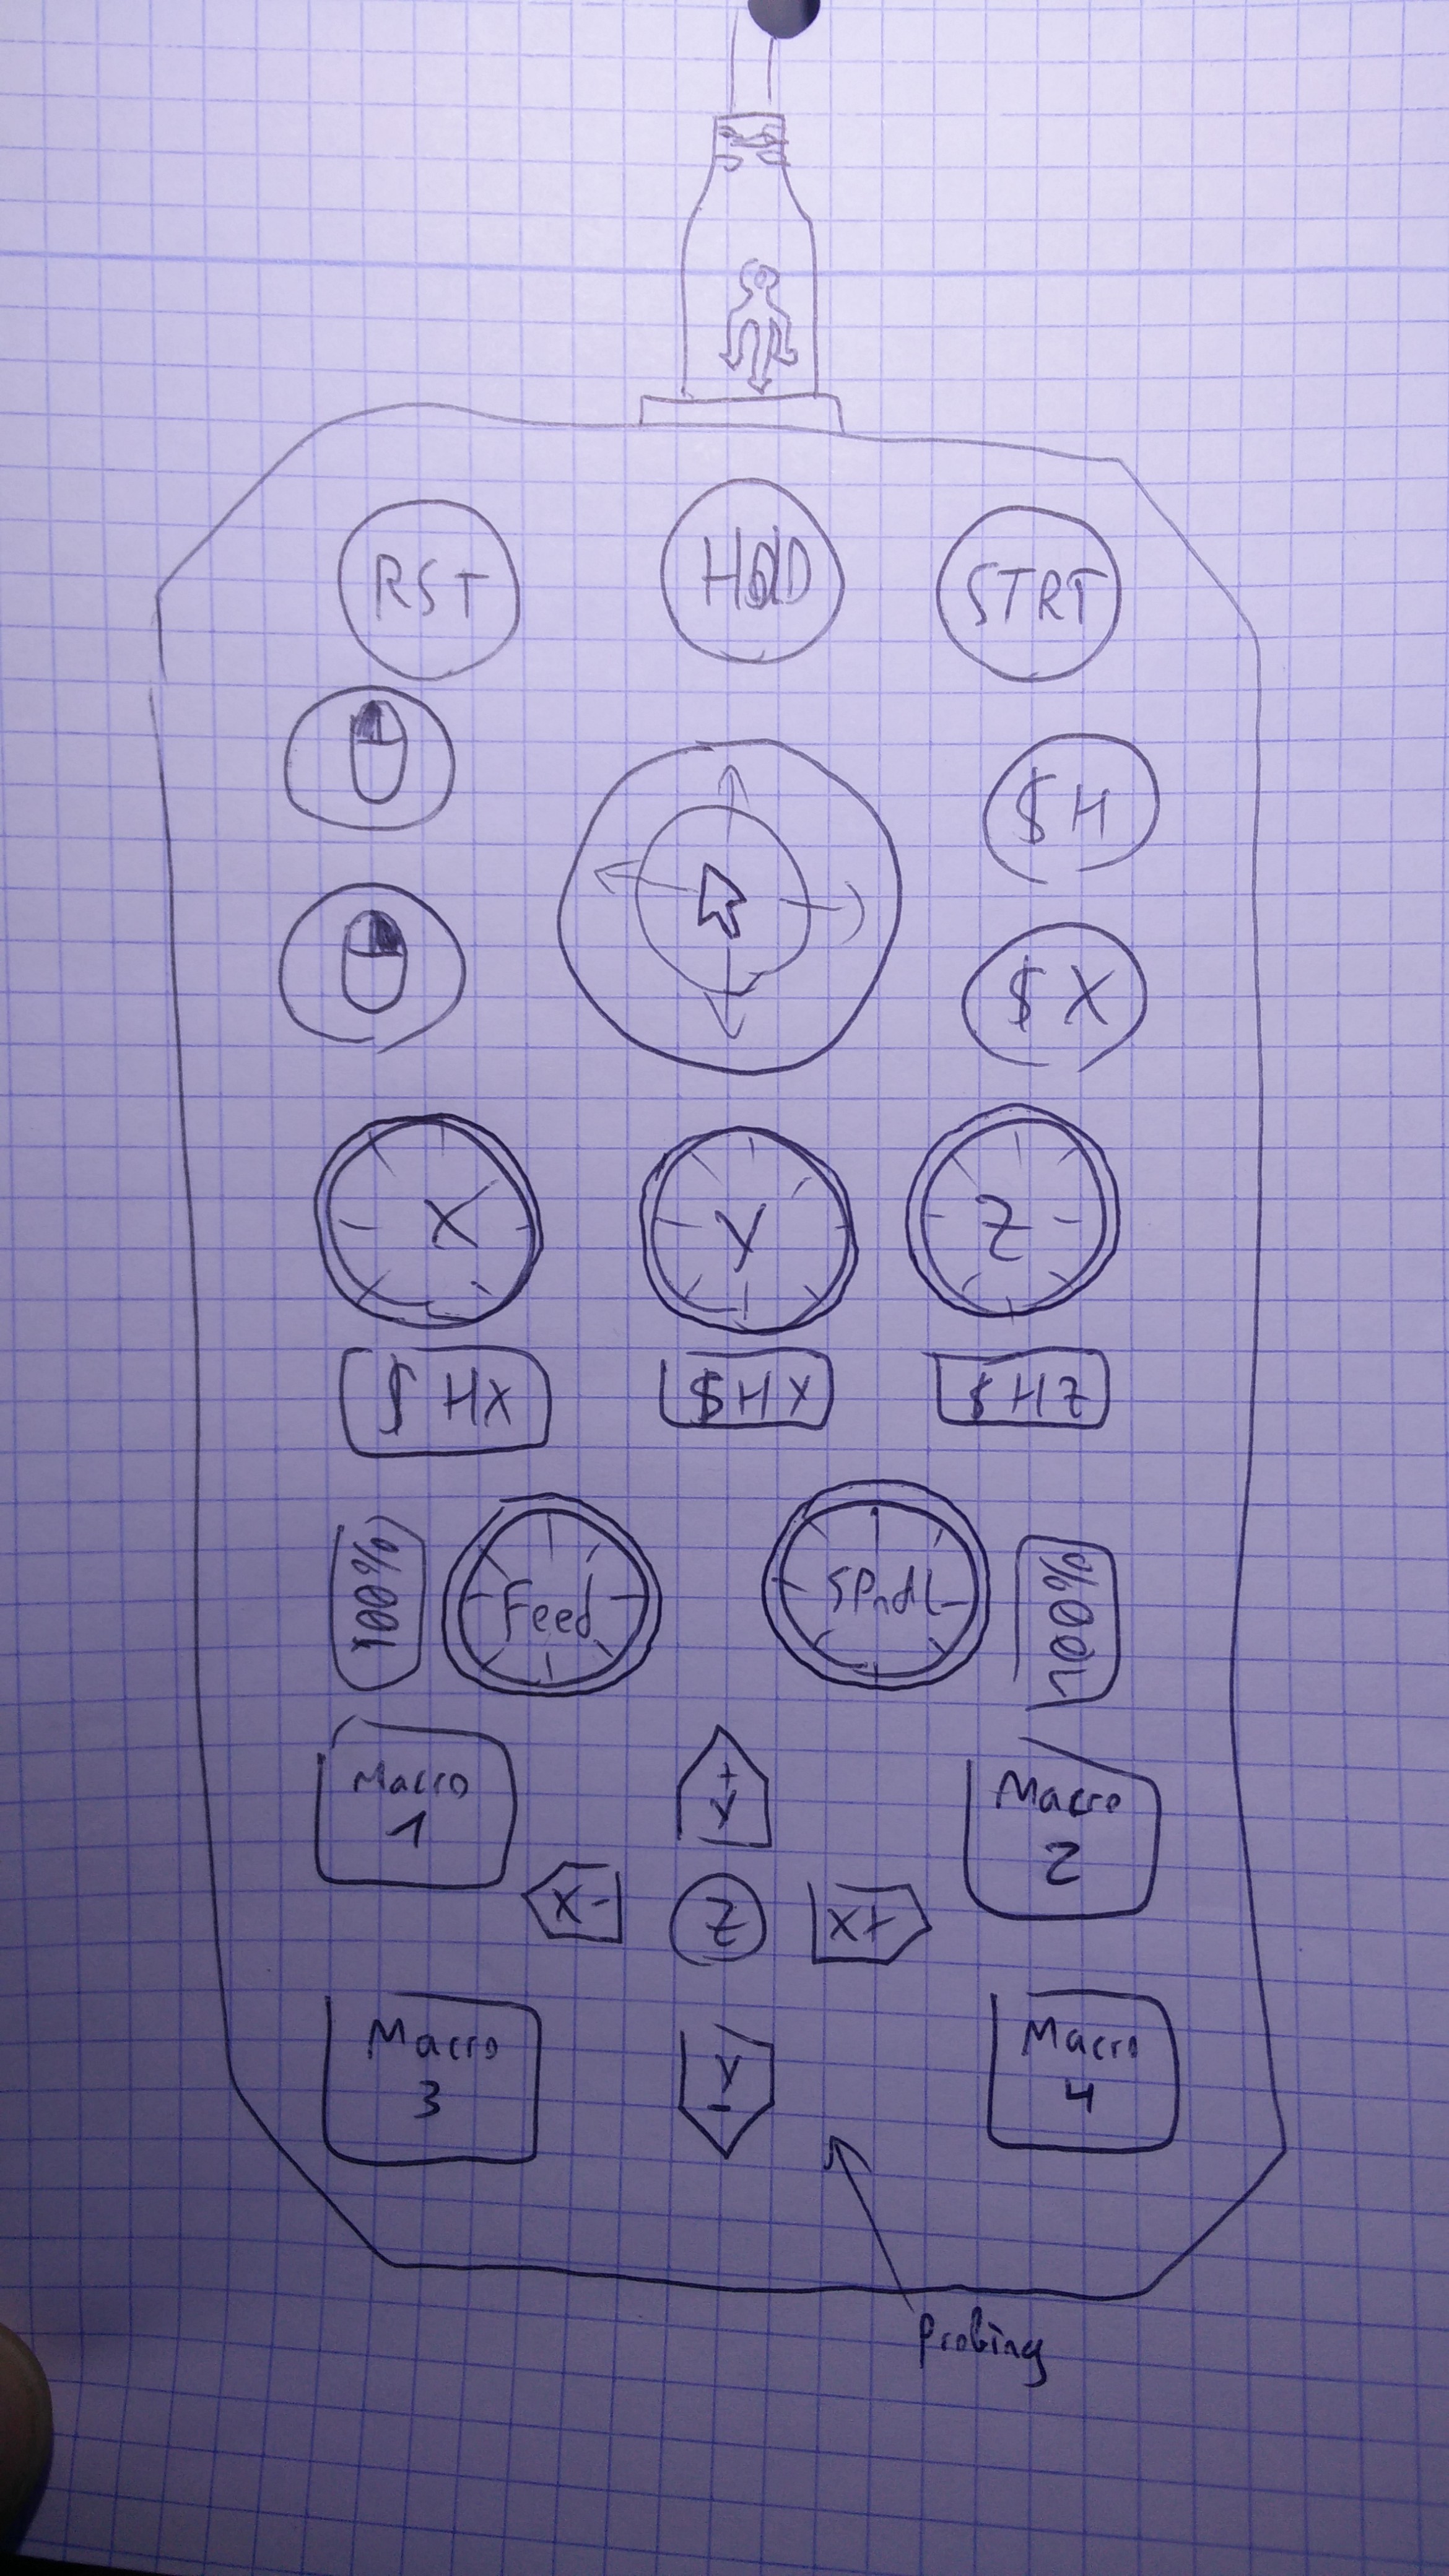 RST HOLD STRT
$H
$X
X Y Z
$HX $HY $HZ
100% Feed SPndL 100%
Macro
1
+
Y
Macro
2
X- Z X+
Macro
3
Y
-
Macro
4
Probing